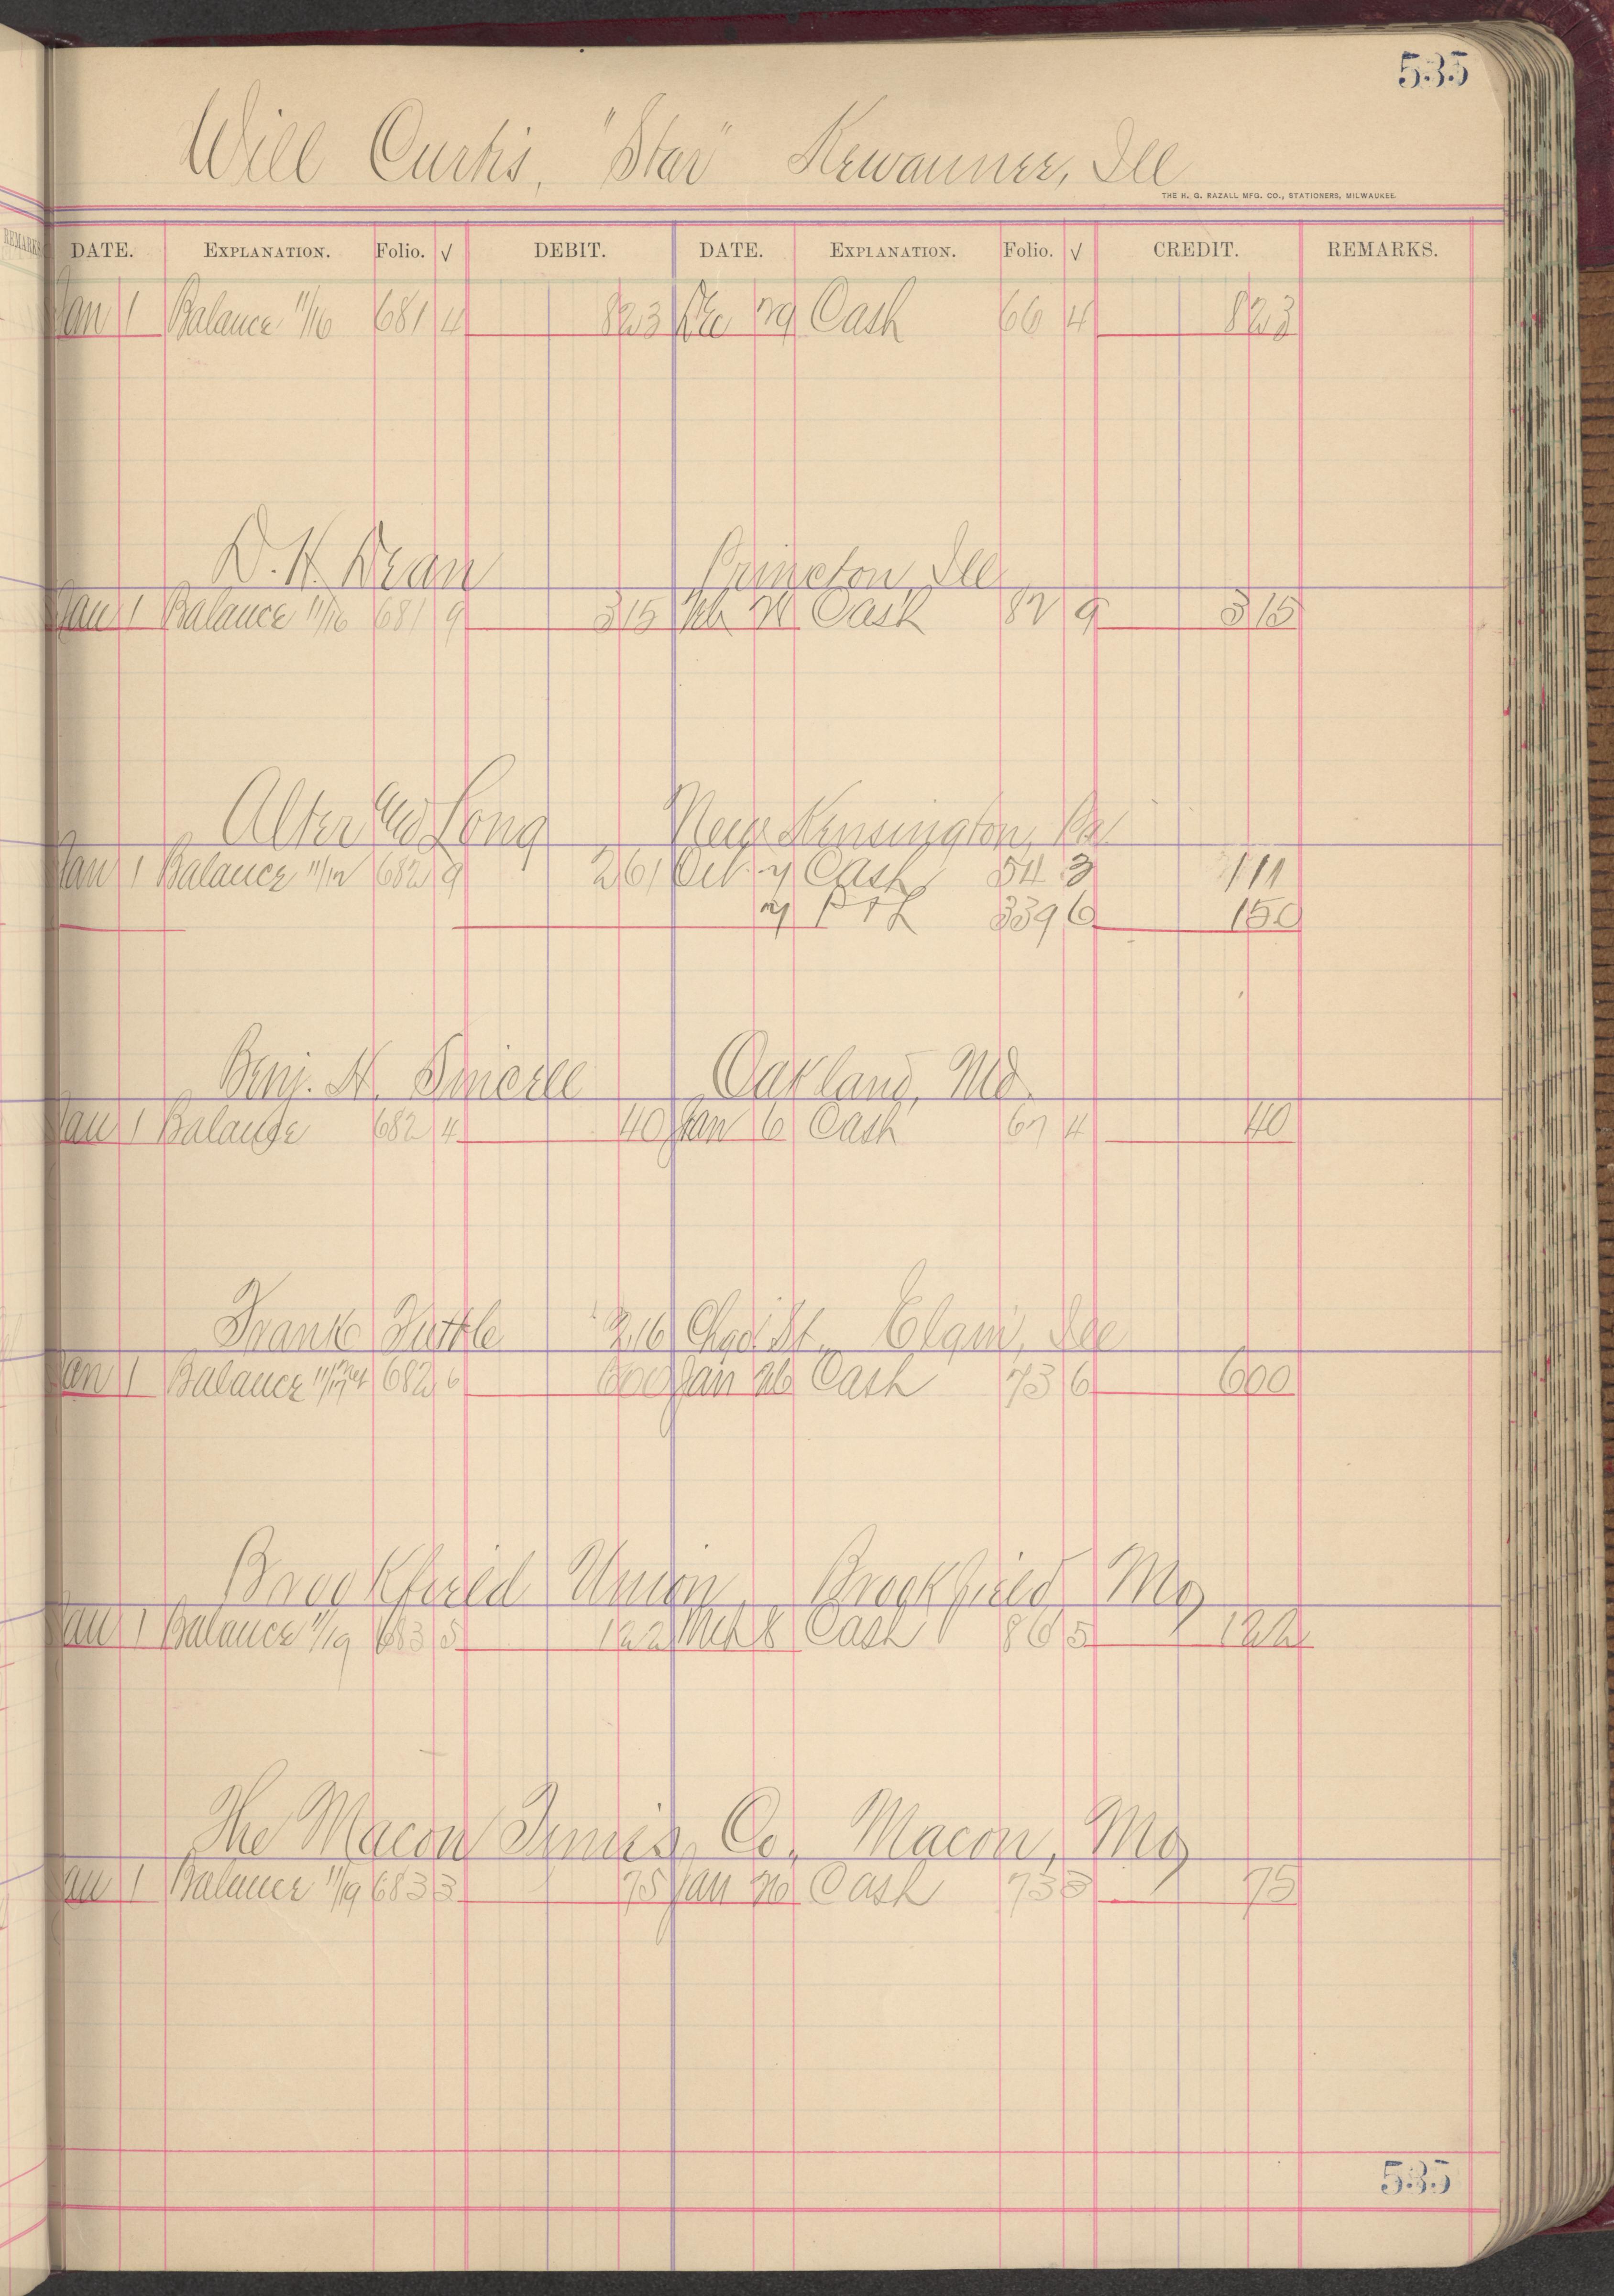 535
Will Curtis, "Star" Kewaunee, Ill
THE H. G. RAZALL MFG. CO., STATIONERS, MILWAUKEE.
REMARKS
DATE. EXPLANATION. Folio. √ DEBIT. DATE. EXPLANATION. Folio. √ CREDIT. REMARKS.
Jan 1 Balance 11/16 681 4 823 Dec 29 Cash 66 4 823
D. H. Dean Princeton, Ill
Jan 1 Balance 11/16 681 9 315 Feb Cash 82 9 315
Alter & Long New Kensington, Pa
Jan 1 Balance 11/12 682 9 261 Oct 7 Cash 54 3 111
7 P & L 339 6 150
Benj. H. Oakland, Md.
Jan 1 Balance 682 4 40 Jan 6 Cash 67 4 40
Frank Tuttle 216 Chgo. St. Elgin, Ill
Jan 1 Balance 682 6 600 Jan 26 Cash 73 6 600
Brookfield Union, Brookfield, Mo
Jan 1 Balance 11/19 683 5 122 Mch 8 Cash 86 5 122
The Macon Times Co. Macon, Mo
Jan 1 Balance 11/19 683 3 75 Jan 26 Cash 73 3 75
535